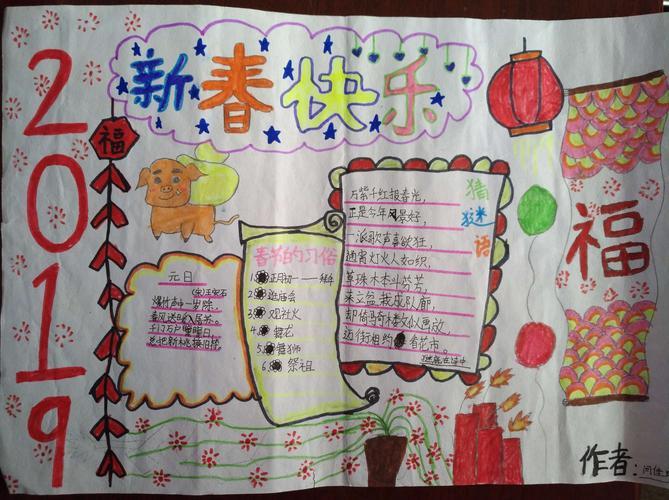 新春快乐
2019
福
福
猜谜语
万紫千红报春光,
正是今年风景好,
一派歌声喜欲狂,
通宵灯火人如织,
草珠木本斗芬芳,
来立盆栽成队廊,
都倚骑楼似画放,
迈街相约看花市。
春节的习俗
1.正月初一——拜年
2.逛庙会
3.见社火
4.舞龙
5.舞狮
6.祭祖
元日
(宋)王安石
爆竹声中一岁除,
春风送暖入屠苏。
千门万户曈曈日,
总把新桃换旧符。
作者: